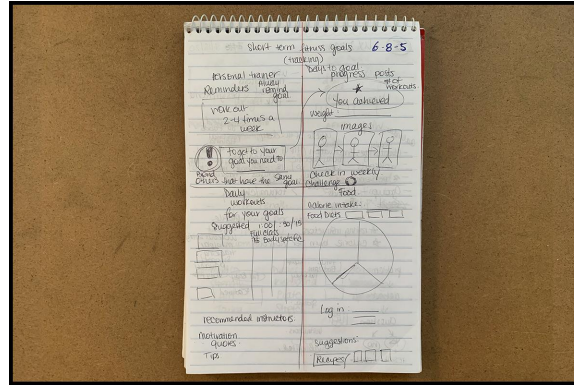 Short term fitness goals 6-8-5
(tracking)
Personal trainer
Reminders
remind
goal
work out
2-4 times a
week
!
To get to your
goal you need to
others that have the same goal
Daily
workouts
for your goals
Suggested
Body specific
recommended instructors:
Motivation
quotes
Tips
Days to goal
progress posts
# of
workouts
You achieved
Weight:
Images
Check in weekly
Challenge
Food
Calorie intake:
Food Diets
Log in
Suggestions:
Recipes/